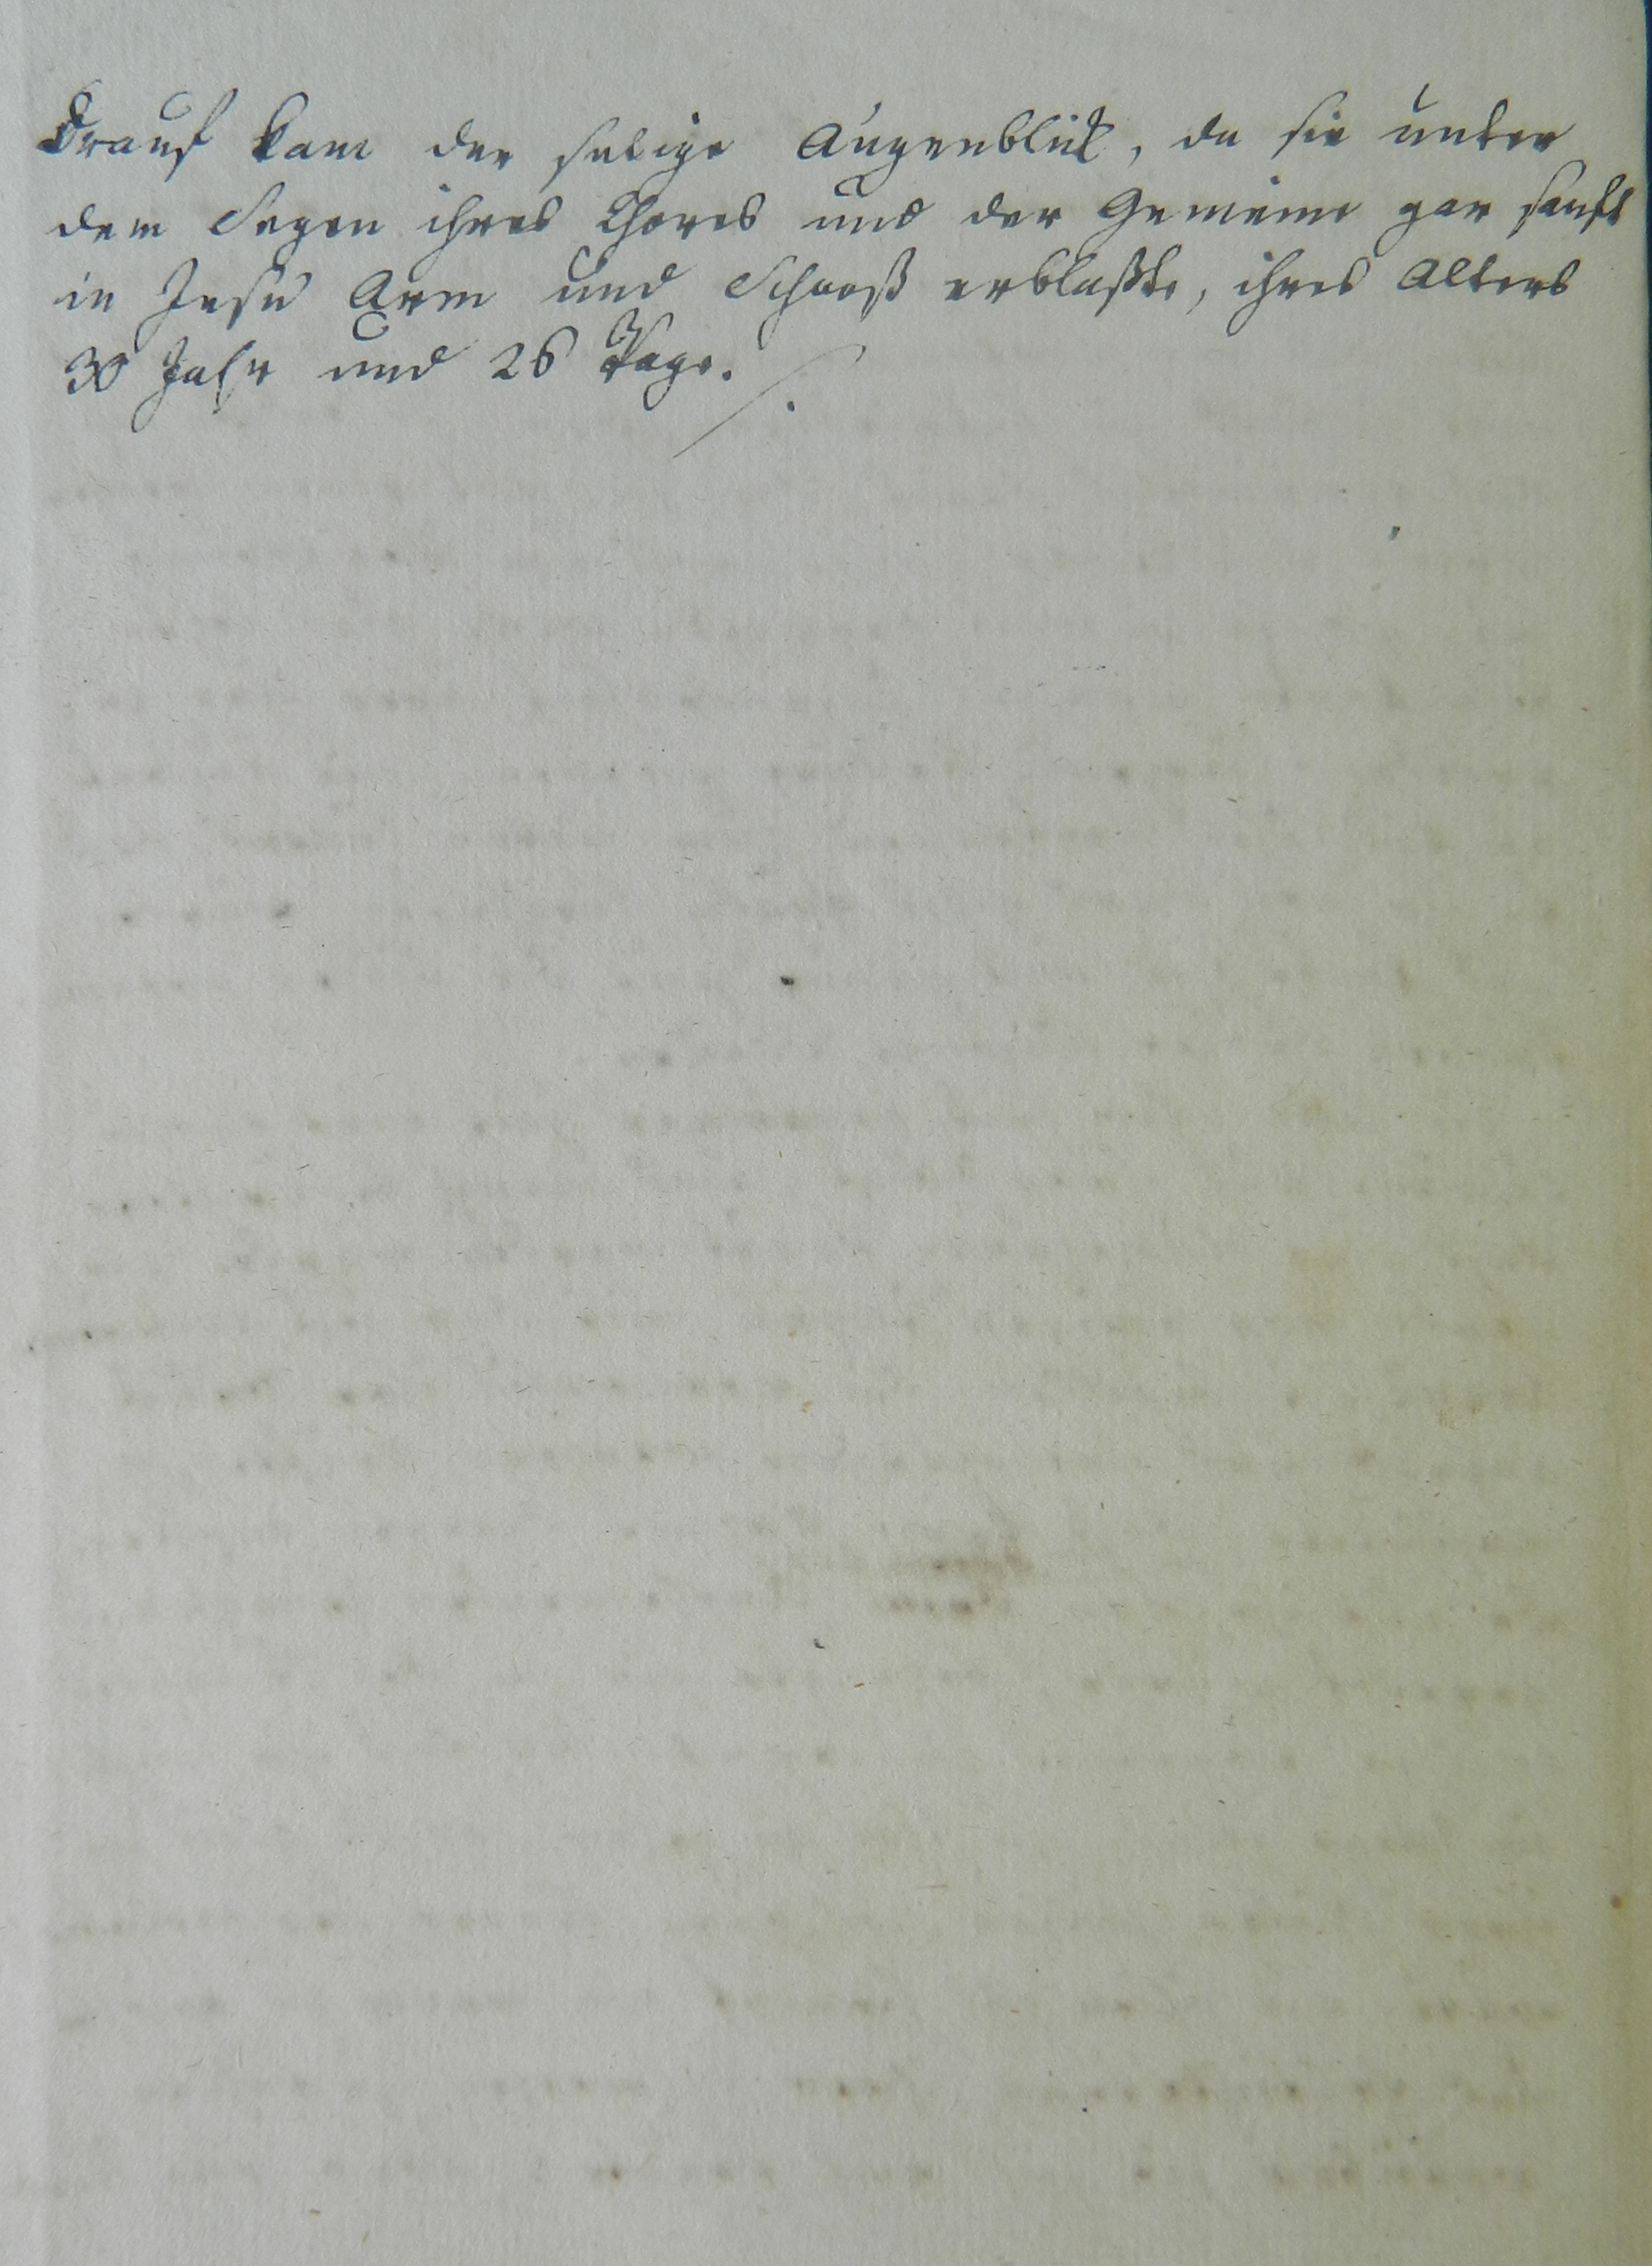 Drauf kam der selige Augenblick, da sie unter
dem Segen ihres Chores und der Gemeine gar sanft
in Jesu Arm und Schooß erblaßte, ihres Alters
30 Jahr und 26 Tage. ./.